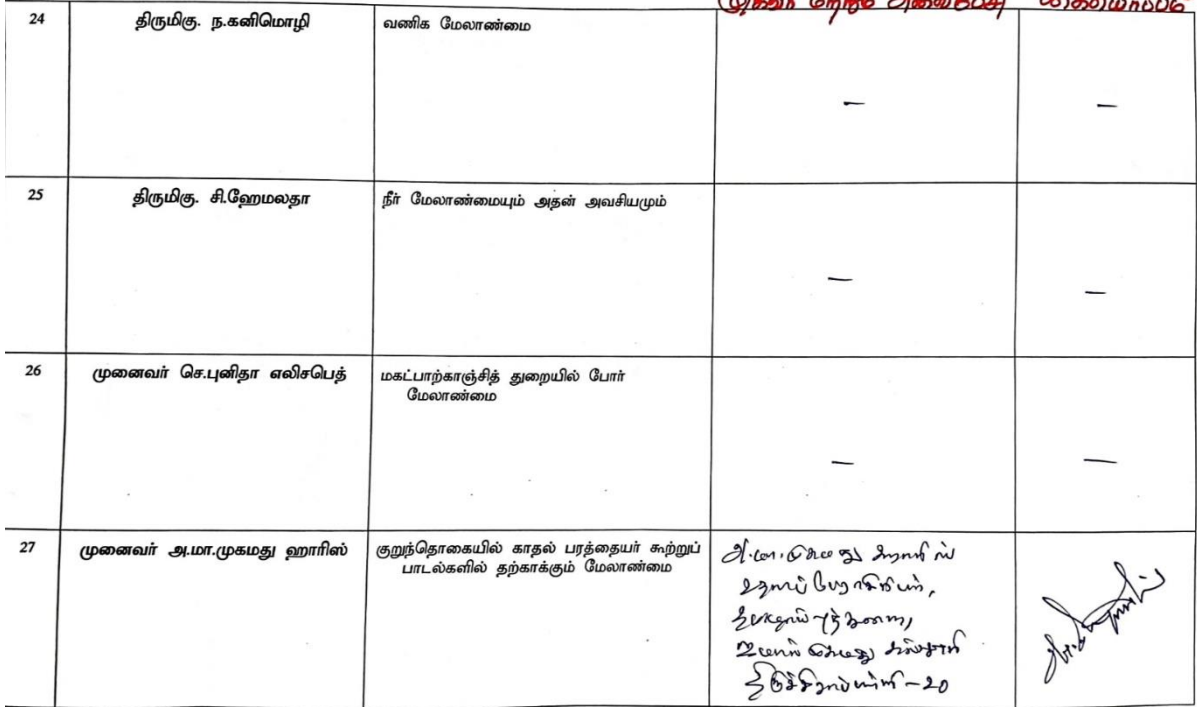 முகவரி மற்றும் அலைபேசி கையொப்பம்
24 திருமிகு. ந.கனிமொழி வணிக மேலாண்மை — —
25 திருமிகு. சி.ஹேமலதா நீர் மேலாண்மையும் அதன் அவசியமும் — —
26 முனைவர் செ.புனிதா எலிசபெத் மகட்பாற்காஞ்சித் துறையில் போர்
மேலாண்மை — —
27 முனைவர் அ.மா.முகமது ஹாரிஸ் குறுந்தொகையில் காதல் பரத்தையர் கூற்றுப்
பாடல்களில் தற்காக்கும் மேலாண்மை
அ.மா.முகமது ஹாரிஸ்
உதவிப் பேராசிரியர்,
ஜமால் முகமது கல்லூரி
திருச்சிராப்பள்ளி-20